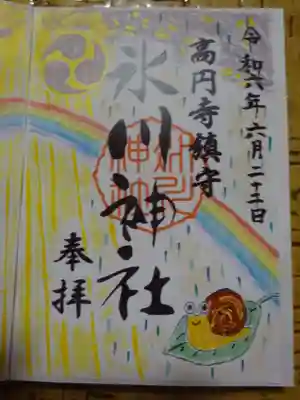 令和六年六月二十二日
高円寺鎮守
氷川神社
奉拝